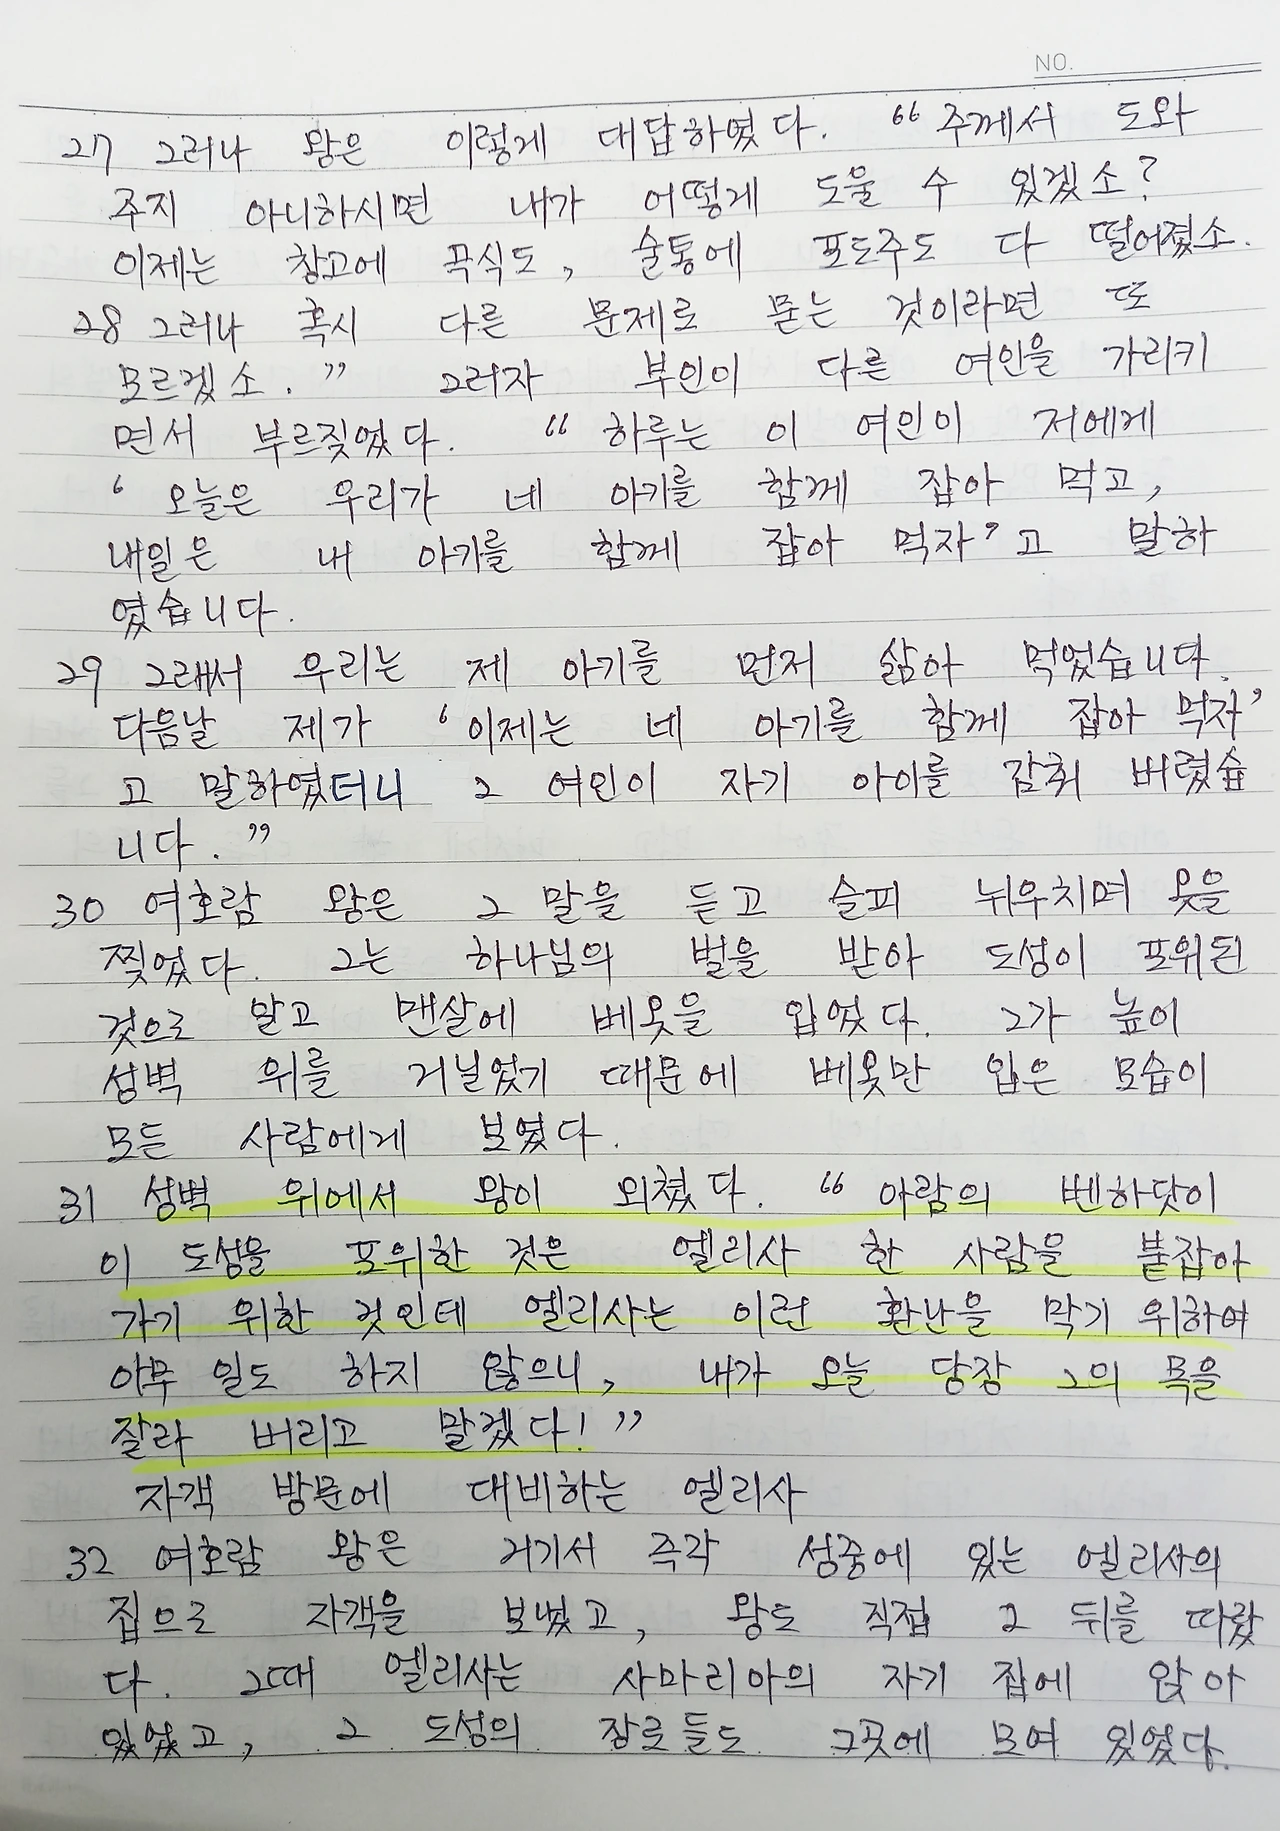 NO.
27 그러나 왕은 이렇게 대답하였다. “주께서 도와
주지 아니하시면 내가 어떻게 도울 수 있겠소?
이제는 창고에 곡식도, 술통에 포도주도 다 떨어졌소.
28 그러나 혹시 다른 문제로 묻는 것이라면 또
모르겠소.” 그러자 부인이 다른 여인을 가리키
면서 부르짖었다. “하루는 이 여인이 저에게
‘오늘은 우리가 네 아기를 함께 잡아 먹고,
내일은 내 아기를 함께 잡아 먹자’고 말하
였습니다.
29 그래서 우리는 제 아기를 먼저 삶아 먹었습니다.
다음날 제가 ‘이제는 네 아기를 함께 잡아 먹자’
고 말하였더니 그 여인이 자기 아이를 감춰 버렸습
니다.”
30 여호람 왕은 그 말을 듣고 슬피 뉘우치며 옷을
찢었다. 그는 하나님의 벌을 받아 도성이 포위된
것으로 알고 맨살에 베옷을 입었다. 그가 높이
성벽 위를 거닐었기 때문에 베옷만 입은 모습이
모든 사람에게 보였다.
31 성벽 위에서 왕이 외쳤다. “아람의 벤하닷이
이 도성을 포위한 것은 엘리사 한 사람을 붙잡아
가기 위한 것인데 엘리사는 이런 환난을 막기 위하여
아무 일도 하지 않으니, 내가 오늘 당장 그의 목을
잘라 버리고 말겠다!”
자객 방문에 대비하는 엘리사
32 여호람 왕은 거기서 즉각 성중에 있는 엘리사의
집으로 자객을 보냈고, 왕도 직접 그 뒤를 따랐
다. 그때 엘리사는 사마리아의 자기 집에 앉아
있었고, 그 도성의 장로들도 그곳에 모여 있었다.